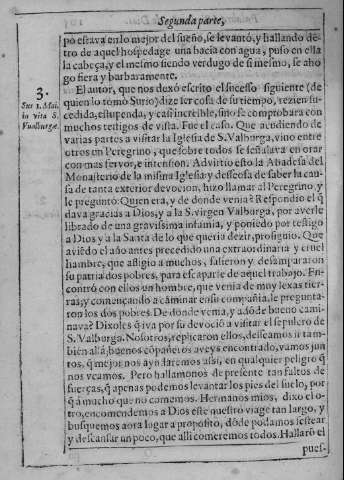 Segunda parte,
po estava en lo mejor del sueño, se levantó, y hallando dẽ-
tro de aquel hospedage una bacia con agua, puso en ella
la cabeça, y el mesmo siendo verdugo de si mesmo, se aho
gò fiera y barbaramente.
3.
Sur 1. Maii.
in vita S.
Vualburgæ.
El autor, que nos dexó escrito el sucesso siguiente (de
quien lo tomó Surio) dize ser cosa de su tiempo, rezien su-
cedida, estupenda, y casi increible, sino se comprobara con
muchos testigos de vista. Fue el caso. Que acudiendo de
varias partes a visitar la Iglesia de S. Valburga, vino entre
otros un Peregrino, que sobre todos se señalava en orar
con mas fervor, e intension. Advirtio esto la Abadesa del
Monasterio de la misma Iglesia y desseosa de saber la cau-
sa de tanta exterior devocion, hizo llamar al Peregrino, y
le preguntò: Quien era, y de donde venia? Respondio el q̃
dava gracias a Dios, y a la S. virgen Valburga, por averle
librado de una gravissima infamia, y poniẽdo por testigo
a Dios y a la Santa de lo que queria dezir, prosiguio. Que
aviẽdo el año antes precedido una extraordinaria y cruel
hambre, que afligio a muchos, salieron y desampararon
su patria dos pobres, para escaparse de aquel trabajo. En-
contrò con ellos un hombre, que venia de muy lexas tier-
ras, y començando a caminar en su compañia, le pregunta-
ron los dos pobres. De donde venia, y adõde bueno cami-
nava? Dixoles q̃ iva por su devociõ a visitar el sepulcro de
S. Valburga. Nosotros, replicaron ellos, desseamos ir tam-
bien allà, buenos cõpañeros aveys encontrado, vamos jun
tos, q̃ mejor nos ayudaremos assi, en qualquier peligro q̃
nos veamos. Pero hallamonos de presente tan faltos de
fuerças, q̃ apenas podemos levantar los pies del suelo, por
q̃ à mucho que no comemos. Hermanos mios, dixo el o-
tro, encomendemos a Dios este nuestro viage tan largo, y
busquemos aora lugar a proposito, dõde podamos sestear
y descansar un poco, que alli comeremos todos. Hallarõ el
pues-